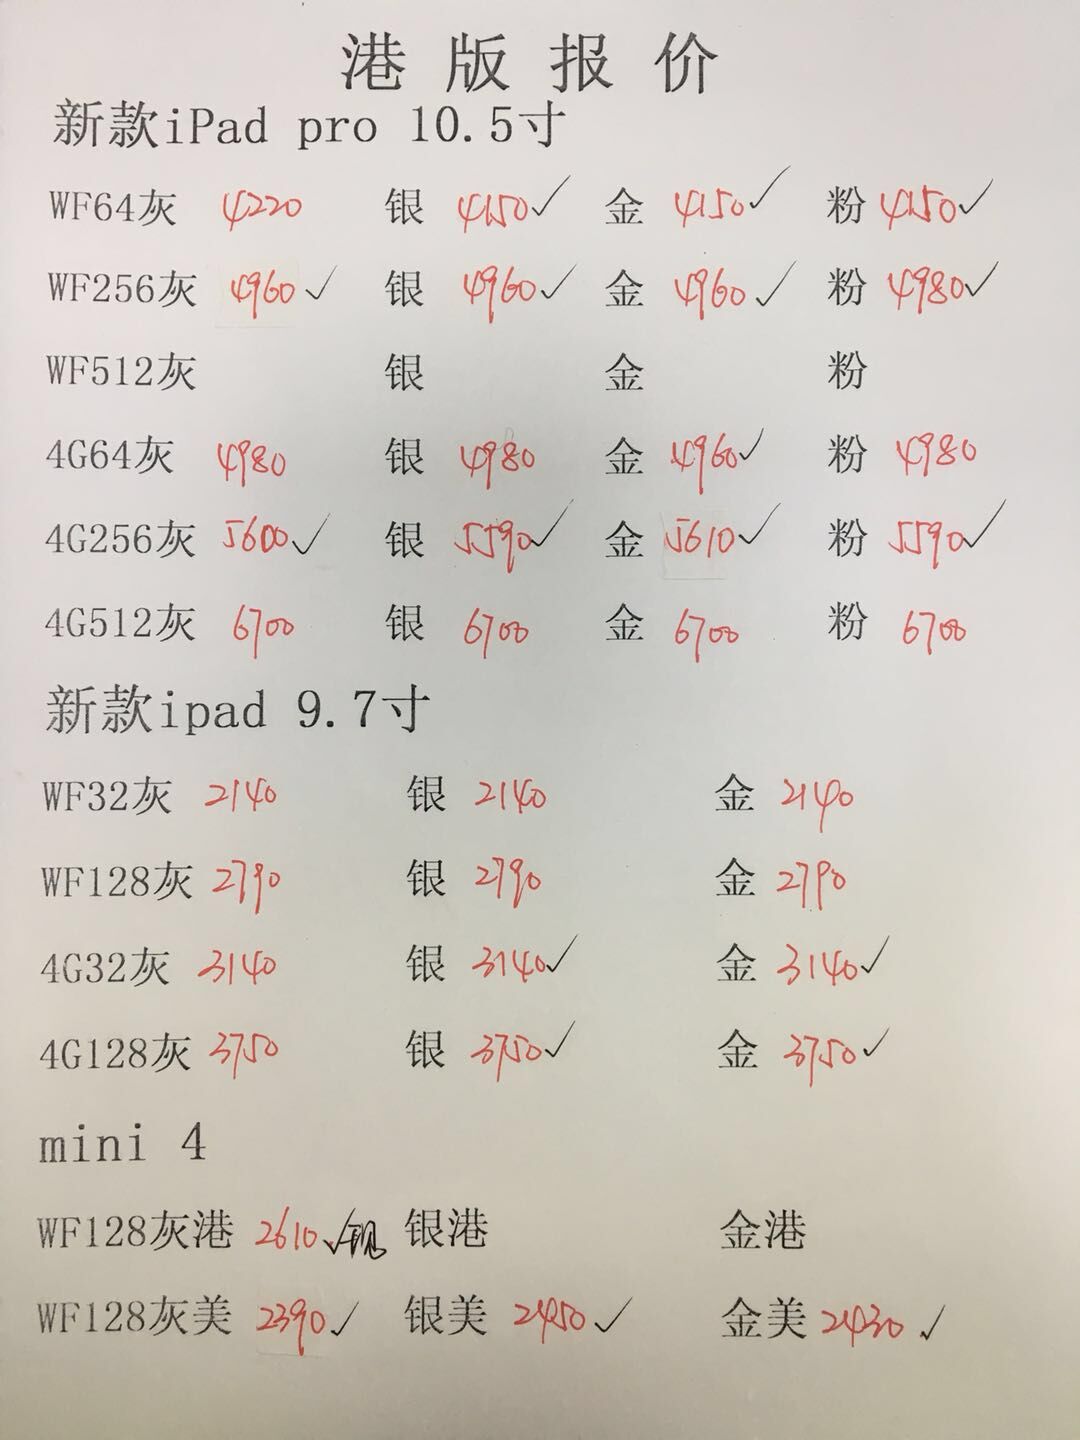 港版报价
新款iPad pro 10.5寸
WF64灰 4220 银 4150✓ 金 4150✓ 粉 4150✓
WF256灰 4960✓ 银 4960✓ 金 4960✓ 粉 4980✓
WF512灰 银 金 粉
4G64灰 4980 银 4980 金 4960✓ 粉 4980
4G256灰 5600✓ 银 5590✓ 金 5610✓ 粉 5590✓
4G512灰 6700 银 6700 金 6700 粉 6700
新款ipad 9.7寸
WF32灰 2140 银 2140 金 2140
WF128灰 2790 银 2790 金 2790
4G32灰 3140 银 3140✓ 金 3140✓
4G128灰 3750 银 3750✓ 金 3750✓
mini 4
WF128灰港 2610✓现 银港 金港
WF128灰美 2390✓ 银美 2450✓ 金美 2430✓